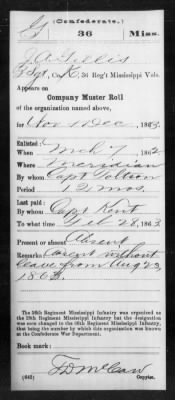 (Confederate.)
G 36 Miss.
J. A. Gillis
Sgt, Co. K, 36 Reg't Mississippi Vols.
Appears on
Company Muster Roll
of the organization named above,
for Nov & Dec, 1863.
Enlisted:
When Mch 7, 1862.
Where Meridian
By whom Capt
Period 12 mos.
Last paid:
By whom Capt Kent
To what time Feb 28, 1863.
Present or absent Absent
Remarks: Absent without
leave from Aug 23,
1863.
The 36th Regiment Mississippi Infantry was organized as
the Regiment Mississippi Infantry but the designation
was soon changed to the 36th Regiment Mississippi Infantry,
that being the number by which this regiment was known
at the Confederate War Department.
Book mark:
(642) Copyist.